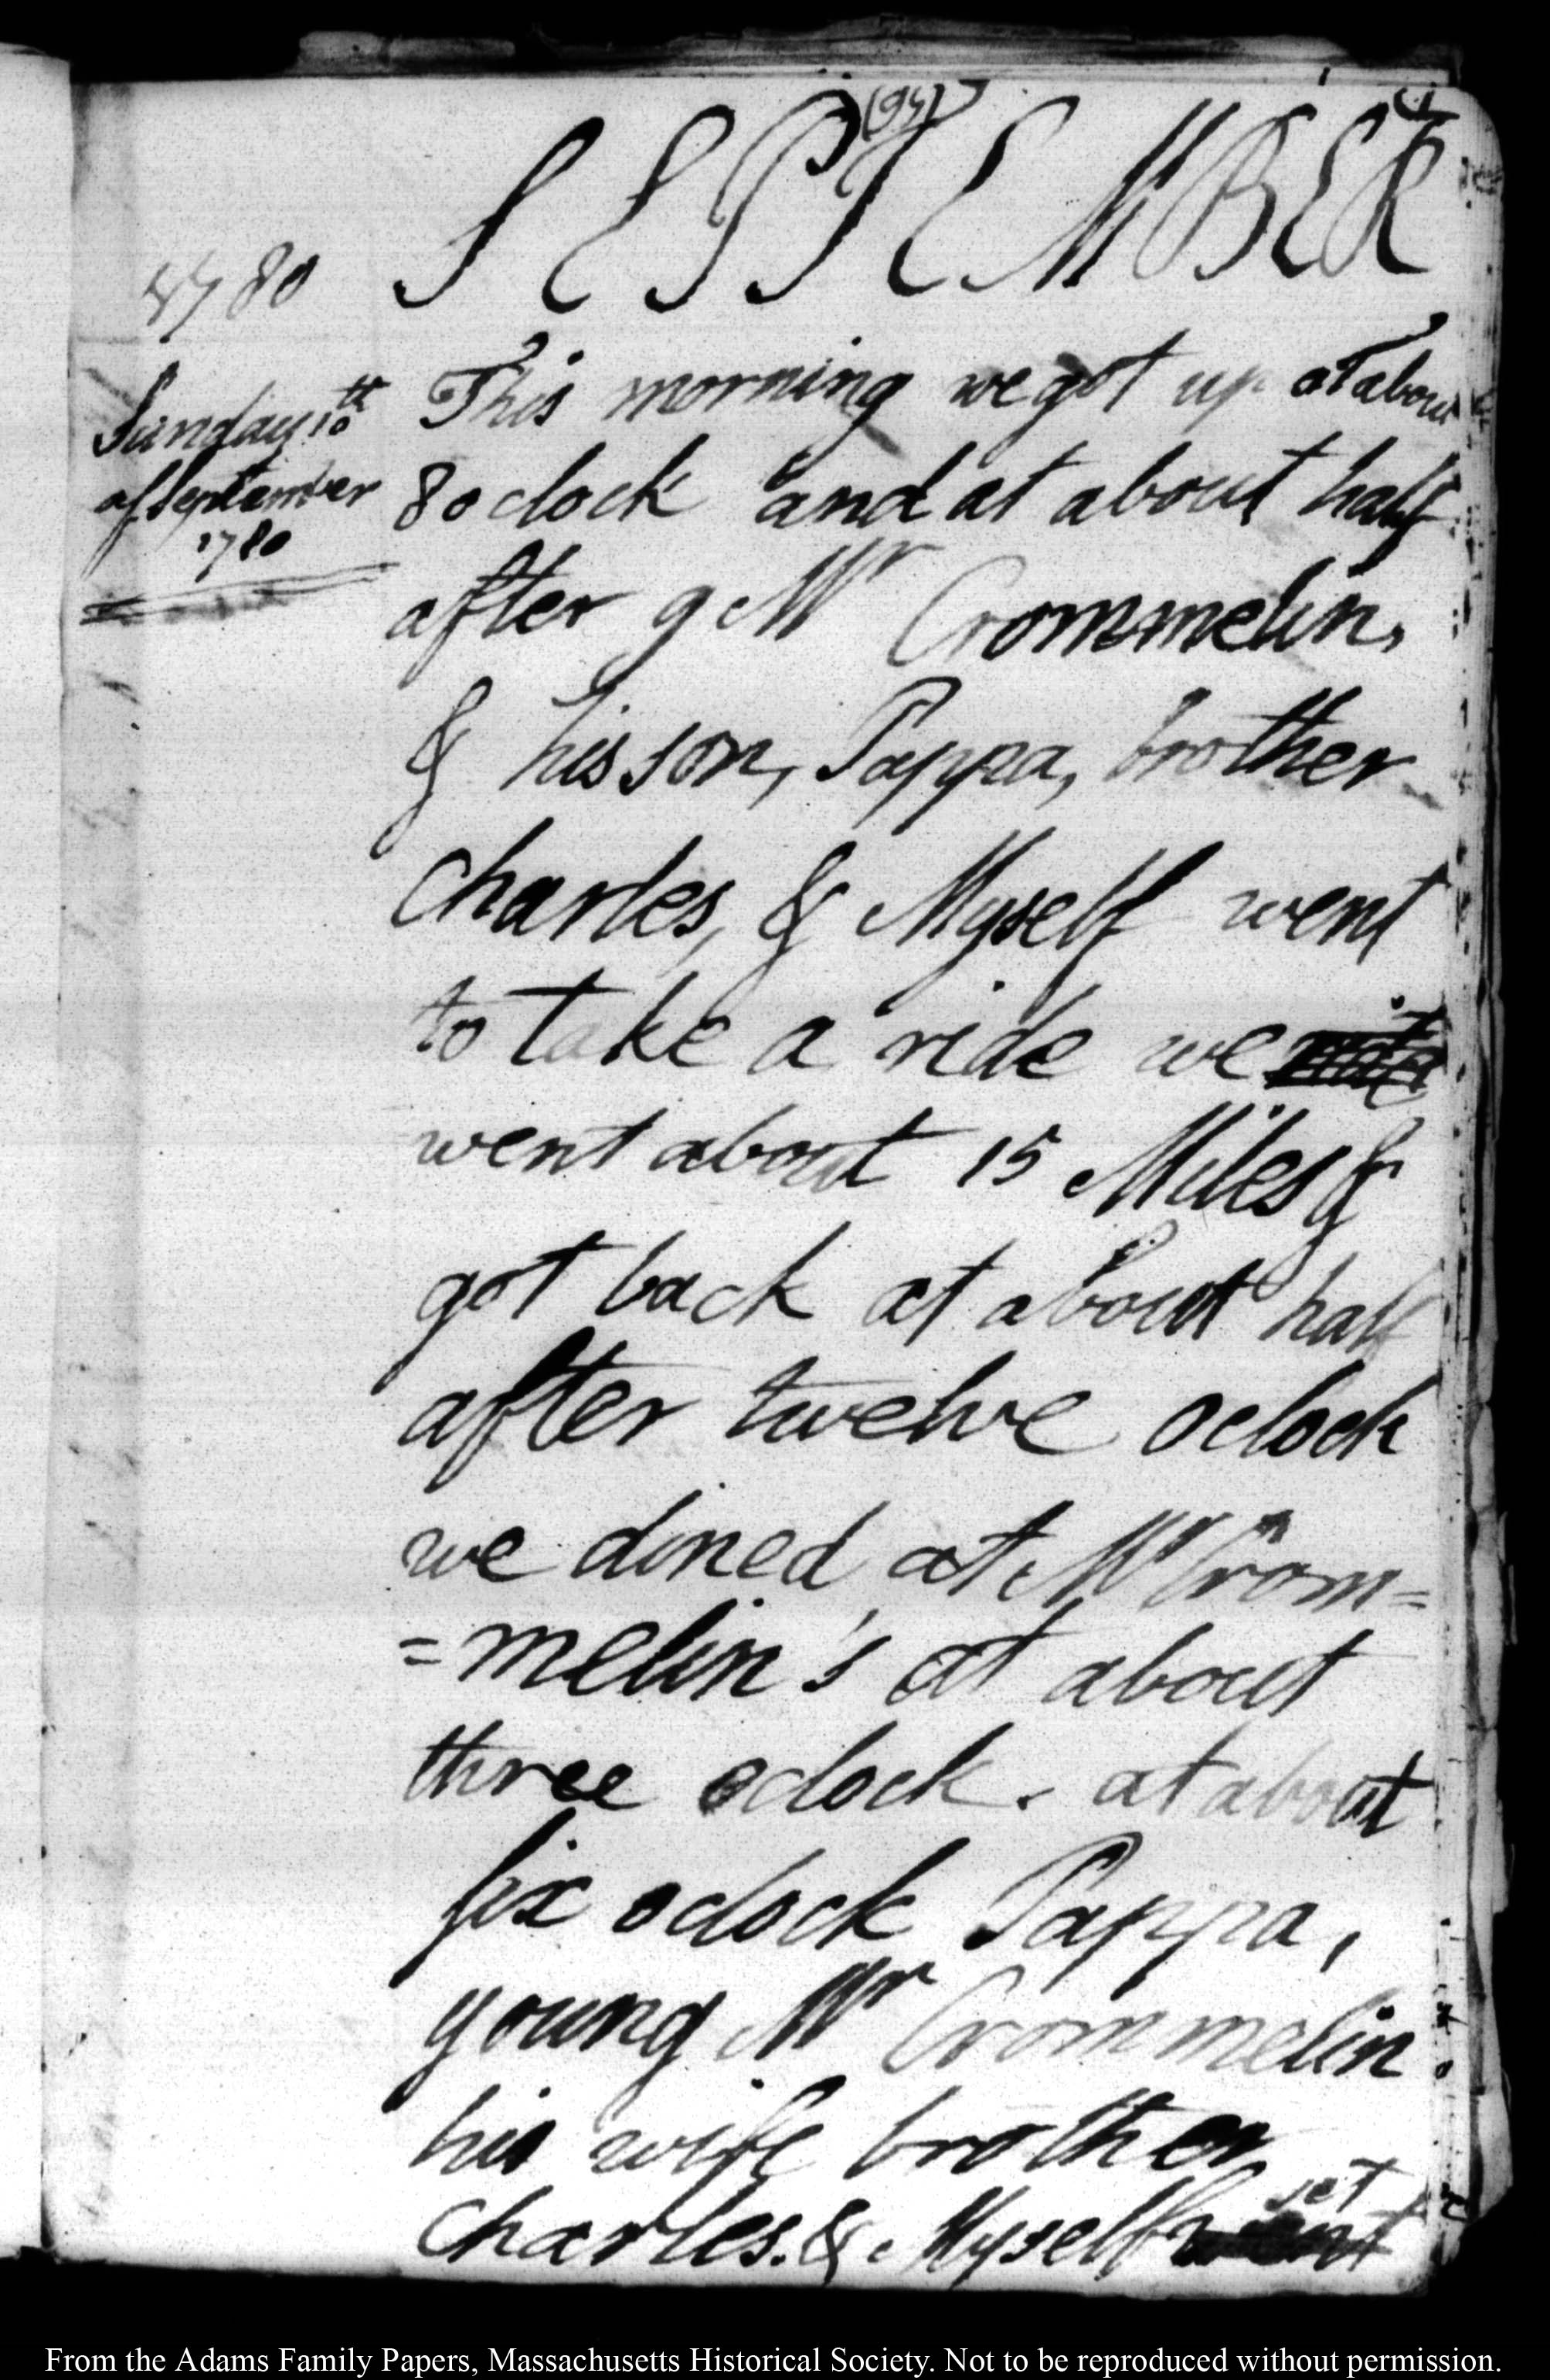 (94)
SEPTEMBER
1780
Sunday 10th
of September
1780
This morning we got up at about
8 oclock and at about half
after 9 Mr Crommelin,
& his son, Pappa, brother
Charles, & Myself went
to take a ride we
went about 15 Miles &
got back at about half
after twelve oclock
we dined at Mr Crom=
=melin's at about
three oclock. at about
six oclock Pappa,
young Mr Crommelin
his wife brother
Charles. & Myself went set
From the Adams Family Papers, Massachusetts Historical Society. Not to be reproduced without permission.